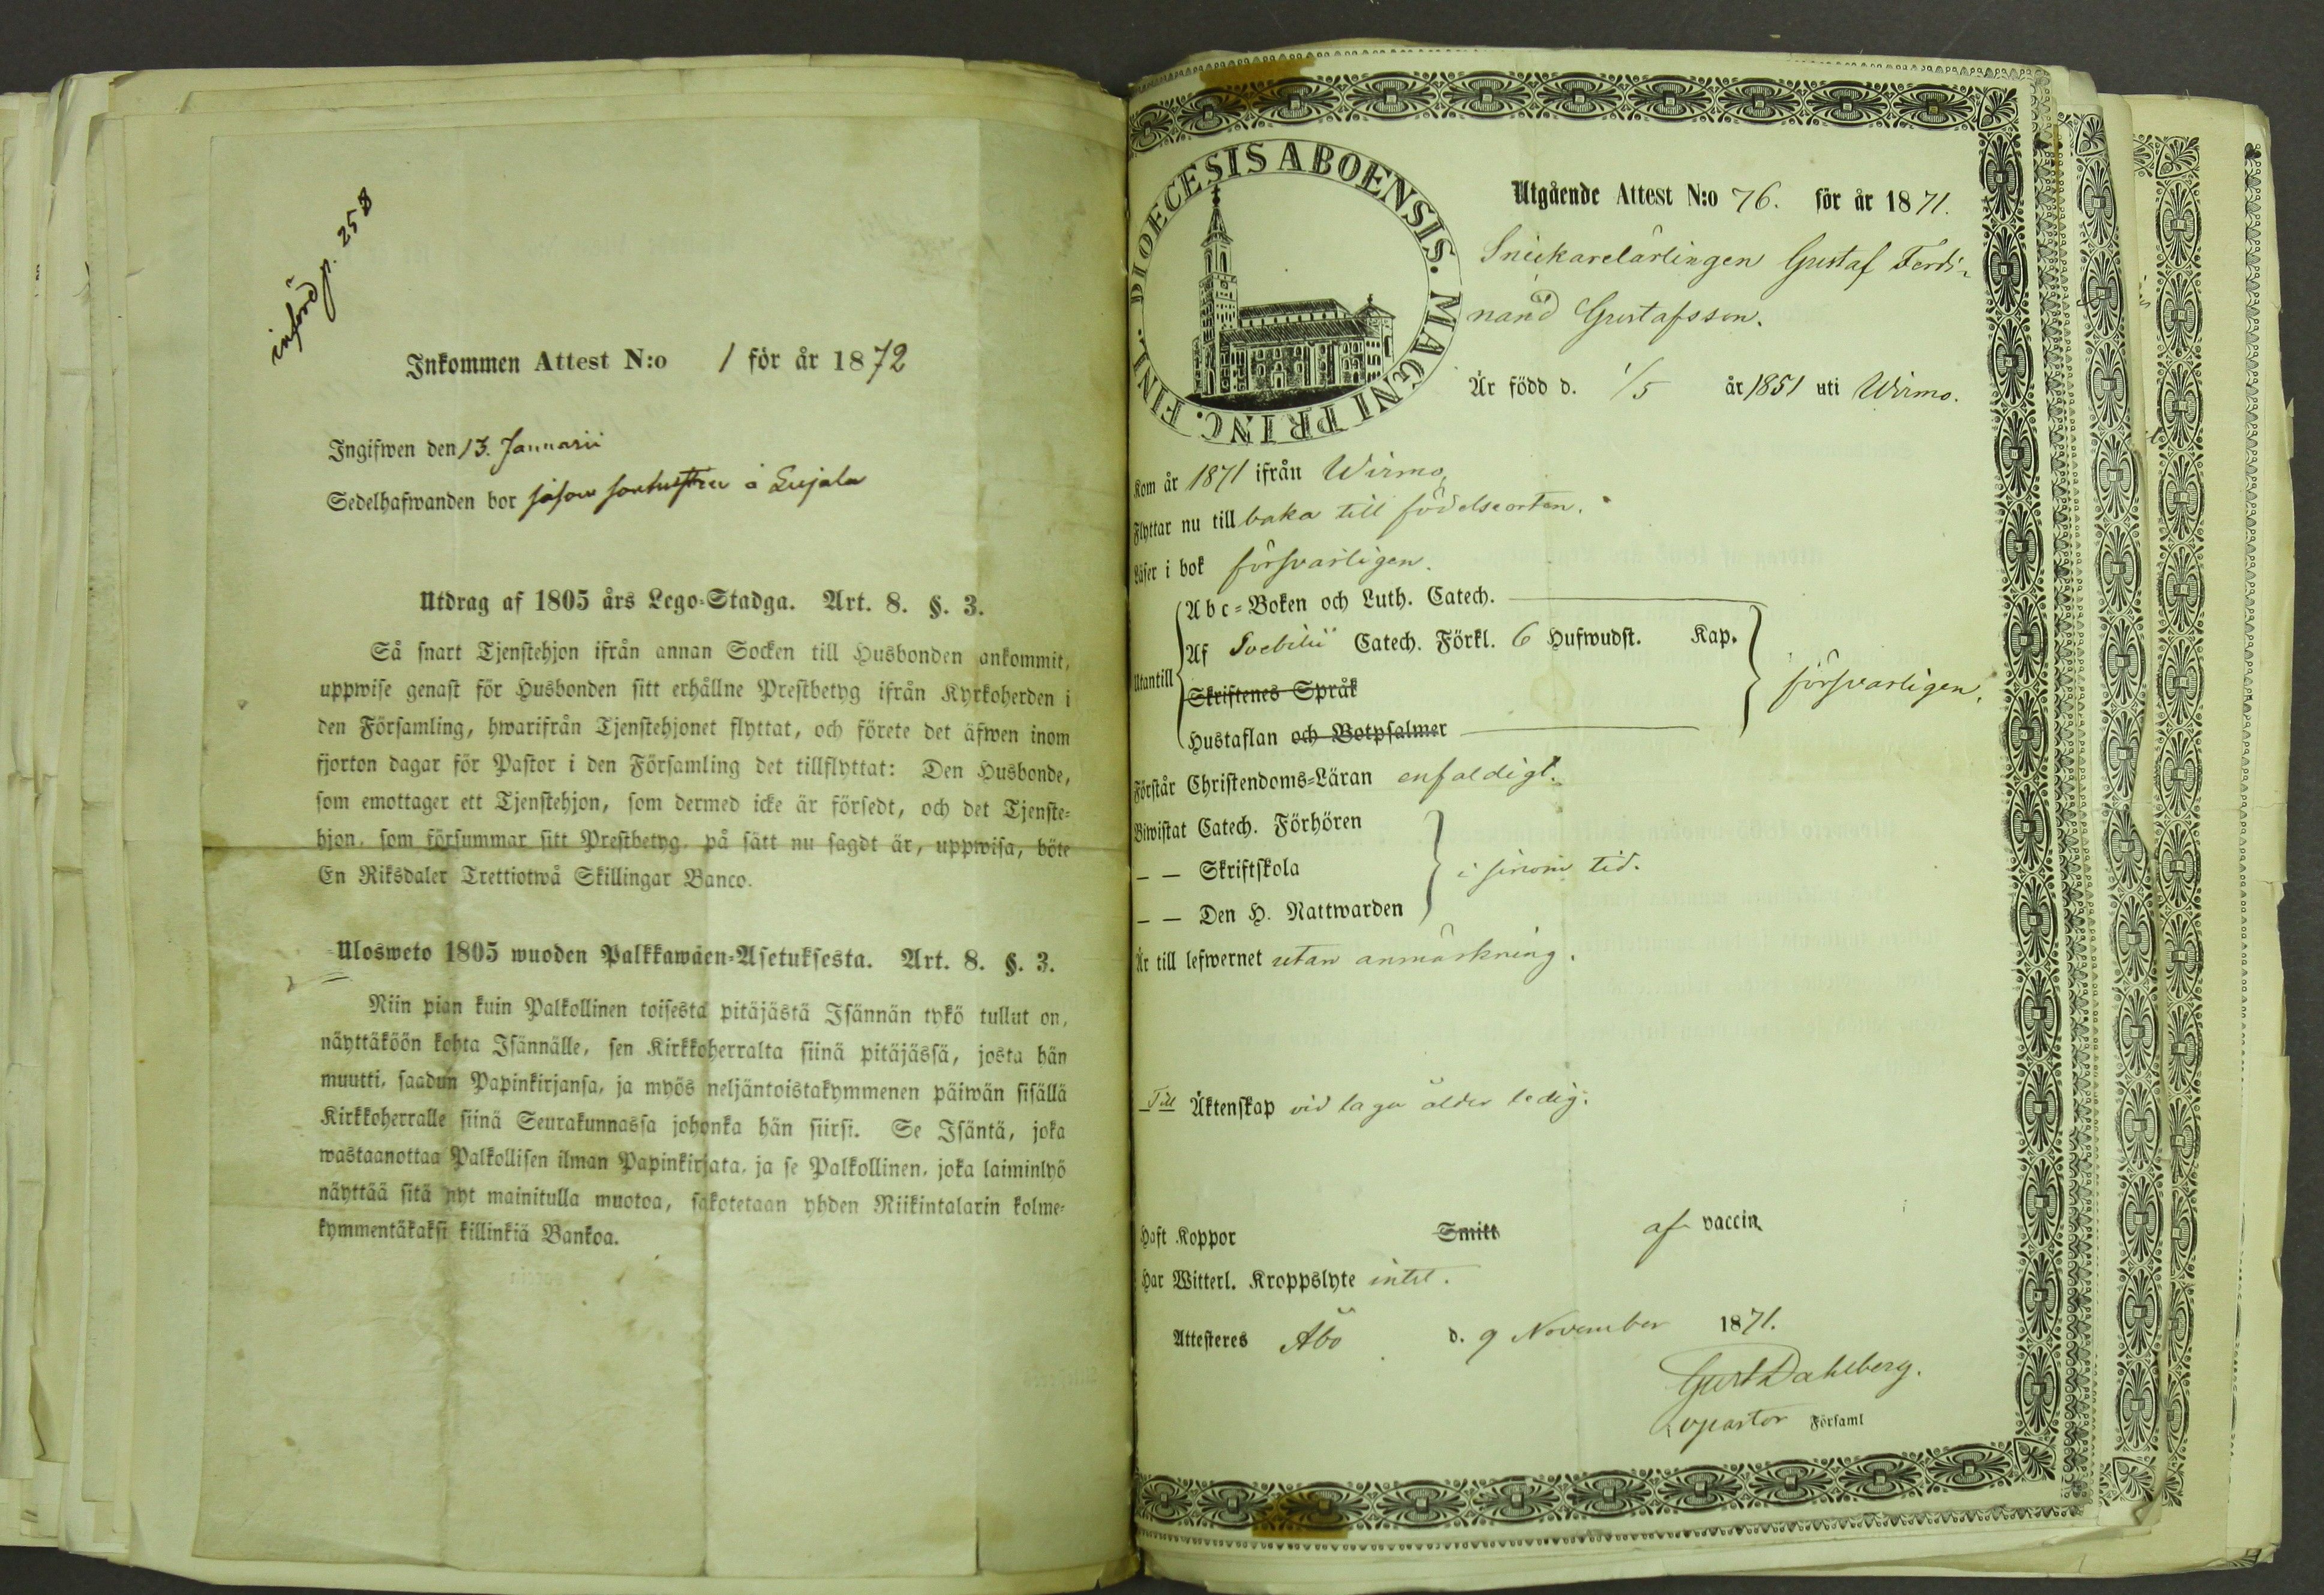 införd p. 258
Inkommen Attest N:o 1 för år 1872
Ingifwen den 13. Januarii
Sedelhafwanden bor såsom å Lujala
Utdrag af 1805 års Lego-Stadga. Art. 8. §. 3.
Så snart Tjenstehjon ifrån annan Socken till Husbonden ankommit,
uppwise genast för Husbonden sitt erhållne Prestbetyg ifrån Kyrkoherden i
den Församling, hwarifrån Tjenstehjonet flyttat, och förete det äfwen inom
fjorton dagar för Pastor i den Församling det tillflyttat: Den Husbonde,
som emottager ett Tjenstehjon, som dermed icke är försedt, och det Tjenste-
hjon, som försummar sitt Prestbetyg, på sätt nu sagdt är, uppwisa, böte
En Riksdaler Trettiotwå Skillingar Banco.
Ulosweto 1805 wuoden Palkkawäen-Asetuksesta. Art. 8. §. 3.
Niin pian kuin Palkollinen toisesta pitäjästä Isännän tykö tullut on,
näyttäköön kohta Isännälle, sen Kirkkoherralta siinä pitäjässä, josta hän
muutti, saadun Papinkirjansa, ja myös neljäntoistakymmenen päiwän sisällä
Kirkkoherralle siinä Seurakunnassa johonka hän siirsi. Se Isäntä, joka
wastaanottaa Palkollisen ilman Papinkirjata, ja se Palkollinen, joka laiminlyö
näyttää sitä nyt mainitulla muotoa, sakotetaan yhden Riikintalarin kolme-
kymmentäkaksi killinkiä Bankoa.
DIOECESIS ABOENSIS. MAGNI PRINC. FINL.
Utgående Attest N:o 76. för år 1871.
Snickarelärlingen Gustaf Ferdi-
nand Gustafsson.
Är född d. 1/5 år 1851 uti Wirmo.
Kom år 1871 ifrån Wirmo,
Flyttar nu till baka till födelseorten.
Läser i bok försvarligen.
Utantill
Abc-Boken och Luth. Catech.
Af Svebilii Catech. Förkl. 6 Hufwudst. Kap.
Skriftenes Språk
Hustaflan och Botpsalmer
försvarligen.
Förstår Christendoms-Läran enfaldigt.
Biwistat Catech. Förhören
— — Skriftskola
— — Den H. Nattwarden
i sinom tid.
Är till lefwernet utan anmärkning.
Till Äktenskap vid laga ålder ledig.
Haft Koppor Smitt af vaccin
Har Witterl. Kroppslyte intet.
Attesteres Åbo d. 9 November 1871.
Gust Dahlberg.
vpastor Församl